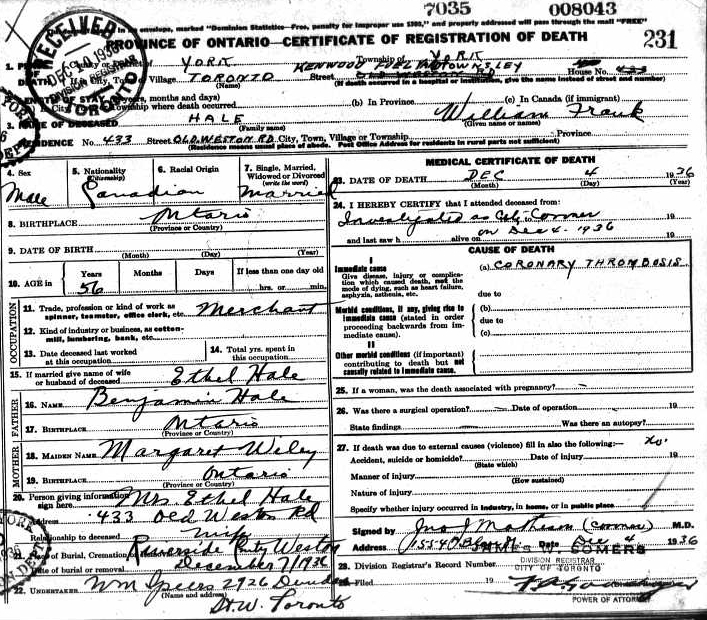 7035 008043
in envelope, marked "Dominion Statistics—Free, penalty for improper use $300," and properly addressed will pass through the mail "FREE"
PROVINCE OF ONTARIO—CERTIFICATE OF REGISTRATION OF DEATH 231
RECEIVED
DEC 1936
DIVISION REGISTRAR
TORONTO
YORK Township of YORK
Village TORONTO (Name) Street House No. 433
(If death occurred in a hospital or institution, give the name instead of street and number)
(years, months and days)
where death occurred (b) In Province (c) In Canada (if immigrant)
3. NAME OF DECEASED HALE (Family name) William Frank (Given name or names)
RESIDENCE No. 433 Street OLD WESTON RD City, Town, Village or Township Province
(Residence means usual place of abode. Post Office Address for residents in rural parts not sufficient)
4. Sex Male
5. Nationality (Citizenship) Canadian
6. Racial Origin
7. Single, Married, Widowed or Divorced (write the word) Married
8. BIRTHPLACE Ontario (Province or Country)
9. DATE OF BIRTH (Month) (Day) (Year)
10. AGE in Years Months Days If less than one day old
56 hrs. or min.
OCCUPATION
11. Trade, profession or kind of work as spinner, teamster, office clerk, etc. Merchant
12. Kind of industry or business, as cotton-mill, lumbering, bank, etc.
13. Date deceased last worked at this occupation
14. Total yrs. spent in this occupation
15. If married give name of wife or husband of deceased Ethel Hale
FATHER
16. NAME Benjamin Hale
17. BIRTHPLACE Ontario (Province or Country)
MOTHER
18. MAIDEN NAME Margaret Wiley
19. BIRTHPLACE Ontario (Province or Country)
20. Person giving information sign here Mrs Ethel Hale
Address 433 Old Weston Rd
Relationship to deceased wife
21. Place of Burial, Cremation Riverside Weston
Date of burial or removal December 7 1936
22. UNDERTAKER Wm Speers 2926 Dundas
(Name and address) St. W. Toronto
MEDICAL CERTIFICATE OF DEATH
23. DATE OF DEATH DEC 4 1936
(Month) (Day) (Year)
24. I HEREBY CERTIFY that I attended deceased from:
Investigated as to 19
and last saw h alive on Dec 4. 1936 19
CAUSE OF DEATH
I
Immediate cause (a) CORONARY THROMBOSIS
Give disease, injury or complication which caused death, not the mode of dying, such as heart failure, asphyxia, asthenia, etc.
due to
Morbid conditions, if any, giving rise to immediate cause (stated in order proceeding backwards from immediate cause). (b)
due to
(c)
II
Other morbid conditions (if important) contributing to death but not causally related to immediate cause.
25. If a woman, was the death associated with pregnancy?
26. Was there a surgical operation? Date of operation 19
State findings Was there an autopsy?
27. If death was due to external causes (violence) fill in also the following:— No.
Accident, suicide or homicide? Date of injury 19
(State which)
Manner of injury
(How sustained)
Nature of injury
Specify whether injury occurred in industry, in home, or in public place
Signed by (Coroner) M.D.
Address Date Dec 4 1936
28. Division Registrar's Record Number
JAMES W. SOMERS
DIVISION REGISTRAR
CITY OF TORONTO
Filed 19
POWER OF ATTORNEY